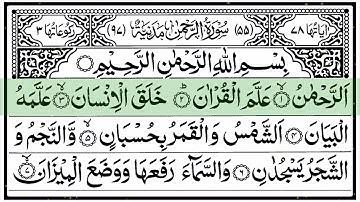 اٰیَاتُهَا ۷۸ (۵۵) سُوْرَةُ الرَّحْمٰنِ مَدَنِیَّةٌ (۹۷) رُكُوْعَاتُهَا ۳
بِسْمِ اللّٰهِ الرَّحْمٰنِ الرَّحِیْمِ
اَلرَّحْمٰنُ ۱ عَلَّمَ الْقُرْاٰنَ ۲ خَلَقَ الْاِنْسَانَ ۳ عَلَّمَهُ
الْبَیَانَ ۴ اَلشَّمْسُ وَالْقَمَرُ بِحُسْبَانٍ ۵ وَّالنَّجْمُ وَ
الشَّجَرُ یَسْجُدٰنِ ۶ وَالسَّمَآءَ رَفَعَهَا وَوَضَعَ الْمِیْزَانَ ۷